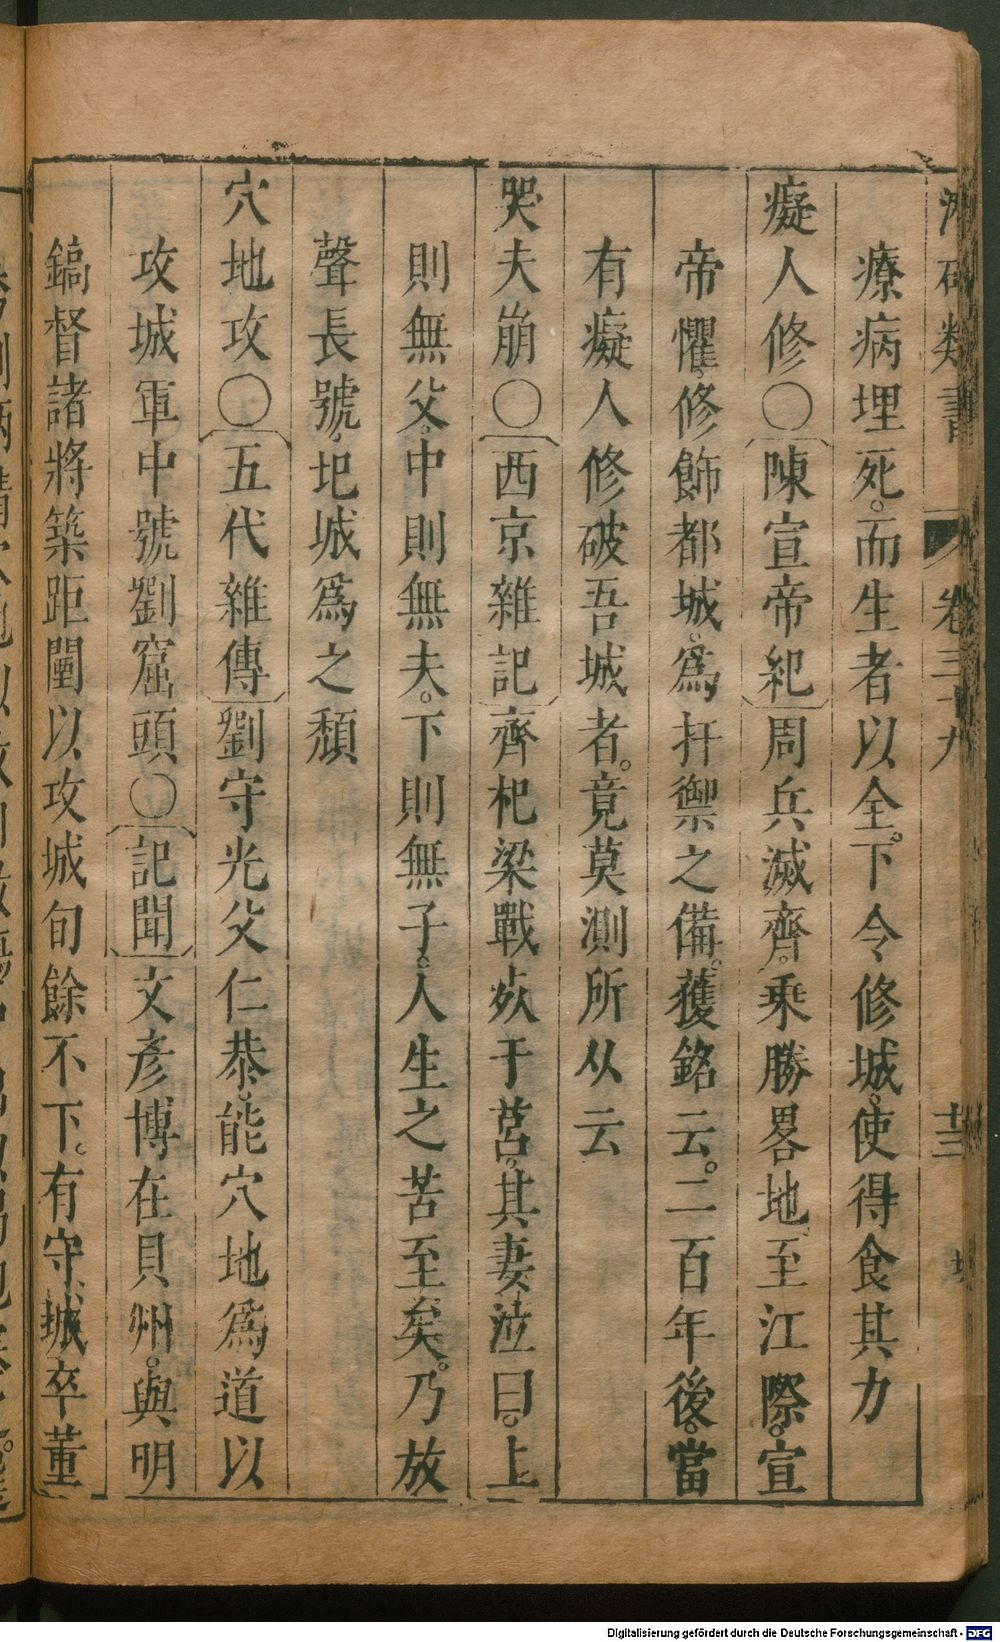 療病埋死。而生者以全。下令修城。使得食其力
癡人修〇陳宣帝紀周兵滅齊。乘勝畧地至江際。宣
帝懼。修飾都城。爲扞禦之備。獲銘云。二百年後。當
有癡人修破吾城者。竟莫測所从云
哭夫崩〇西京雜記齊杞梁戰歿于莒。其妻泣曰。上
則無父。中則無夫。下則無子。人生之苦至矣。乃放
聲長號。圯城爲之頹
穴地攻〇五代雜傳劉守光父仁恭。能穴地爲道以
攻城軍中號劉窟頭〇記聞文彥博在貝州。與明
鎬督諸將築距闉以攻城旬餘不下。有守城卒董
類書
卷三十九
十三
Digitalisierung gefördert durch die Deutsche Forschungsgemeinschaft - DFG